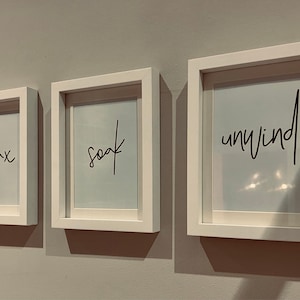 soak
unwind